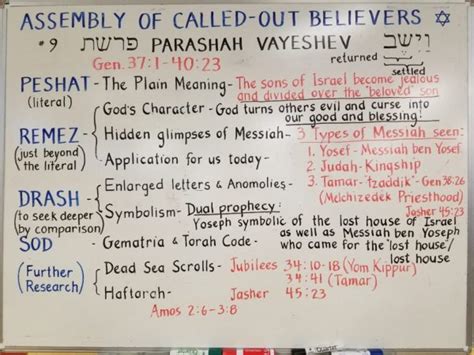 ASSEMBLY OF CALLED-OUT BELIEVERS ✡
#9 פרשת PARASHAH VAYESHEV וַיֵּשֶׁב
Gen. 37:1-40:23 returned settled
PESHAT - The Plain Meaning - The sons of Israel become jealous
(literal) and divided over the "beloved" son
God's Character - God turns others evil and curse into
our good and blessing!
REMEZ Hidden glimpses of Messiah - 3 Types of Messiah seen:
(just beyond the literal) 1. Yosef - Messiah ben Yosef
Application for us today - 2. Judah - Kingship
3. Tamar - "tzaddik" - Gen 38:26
(Melchizedek Priesthood)
Jasher 45:23
DRASH Enlarged letters & Anomolies -
(to seek deeper by comparison) Symbolism - Dual prophecy:
Yoseph symbolic of the lost house of Israel
as well as Messiah ben Yoseph
who came for the "lost house"/
lost house
SOD - Gematria & Torah Code -
(Further Research) Dead Sea Scrolls - Jubilees 34:10-18 (Yom Kippur)
34:41 (Tamar)
Haftorah - Jasher 45:23
Amos 2:6-3:8